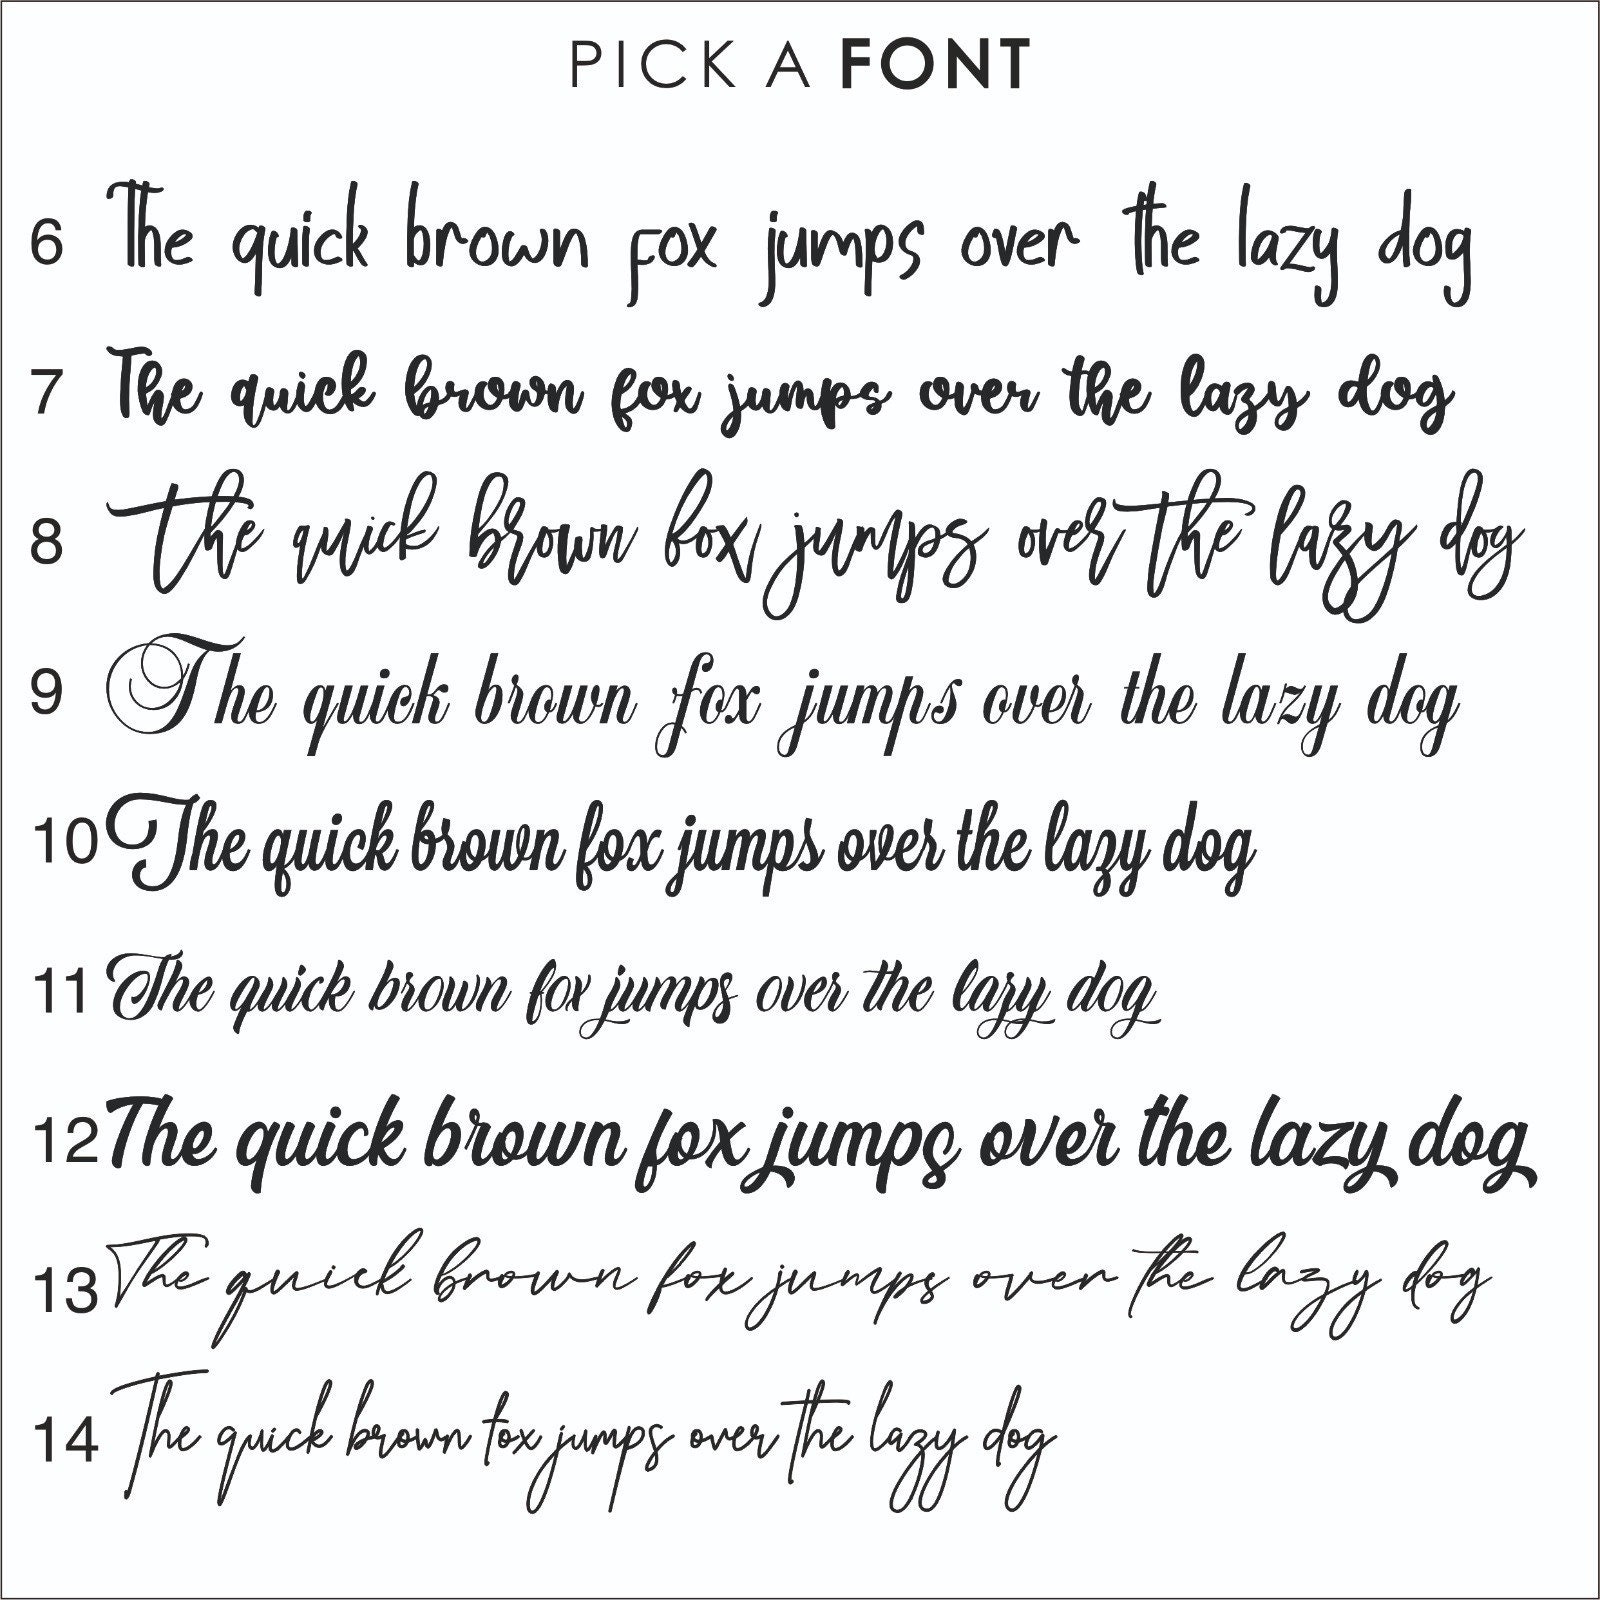 PICK A FONT
6 The quick brown fox jumps over the lazy dog
7 The quick brown fox jumps over the lazy dog
8 the quick brown fox jumps over the lazy dog
9 The quick brown fox jumps over the lazy dog
10 The quick brown fox jumps over the lazy dog
11 The quick brown fox jumps over the lazy dog
12 The quick brown fox jumps over the lazy dog
13 The quick brown fox jumps over the lazy dog
14 The quick brown fox jumps over the lazy dog